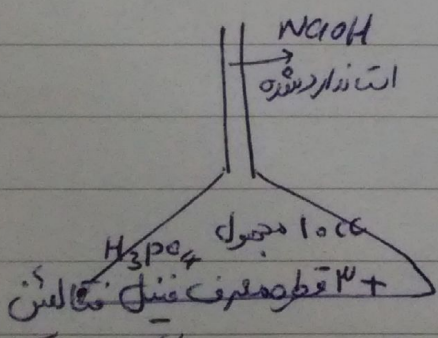 NaOH
استاندارد شده
10cc مجهول
H3PO4
+ ۳ قطره معرف فنیل فتالئین